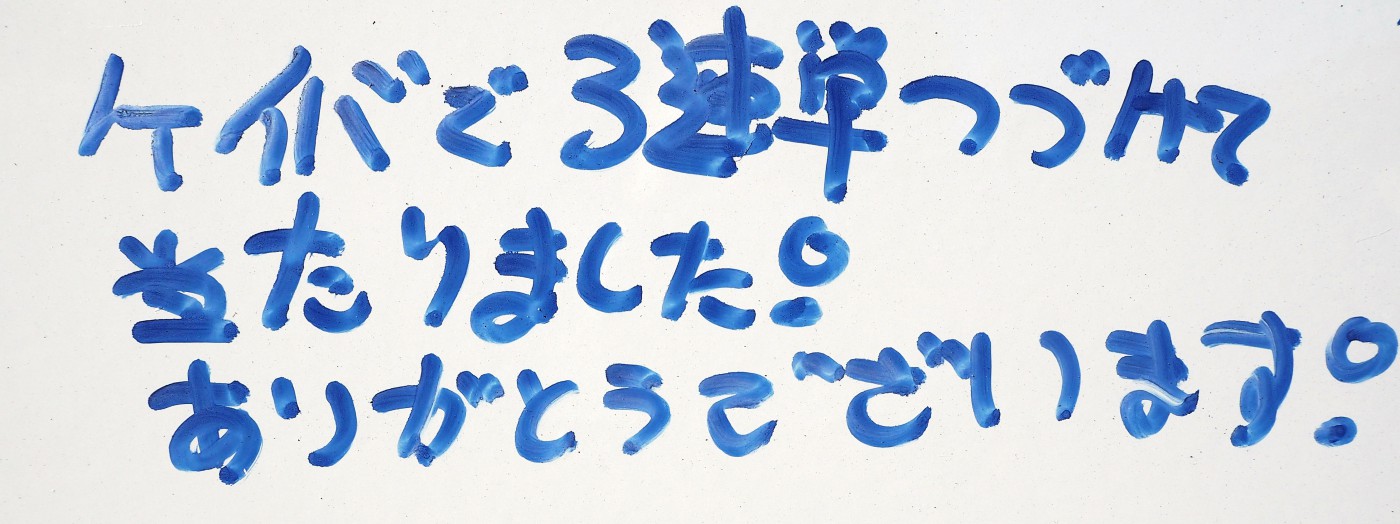 ケイバで3連単つづけて
当たりました!
ありがとうございます!